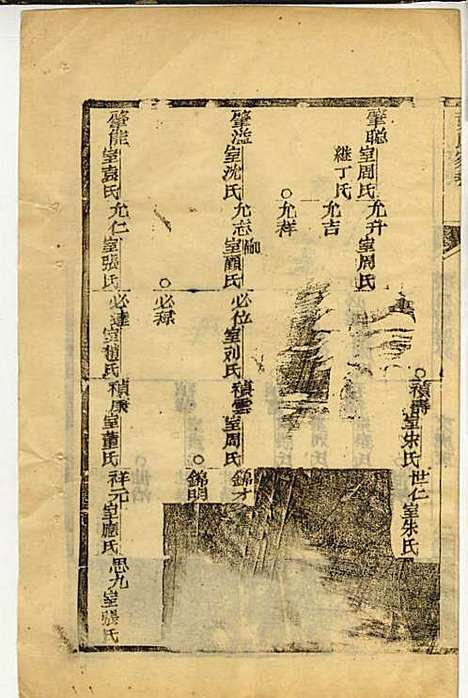 禎壽室朱氏 世仁室朱氏
肇聰室周氏 允升室周氏
繼丁氏 允吉
允祥
肇滋室沈氏 允志室顧氏 必位室刘氏 禎雲室周氏 錦才
錦明
必祿
肇能室袁氏 允仁室張氏 必達室趙氏 禎康室董氏 祥元室應氏 思九室張氏